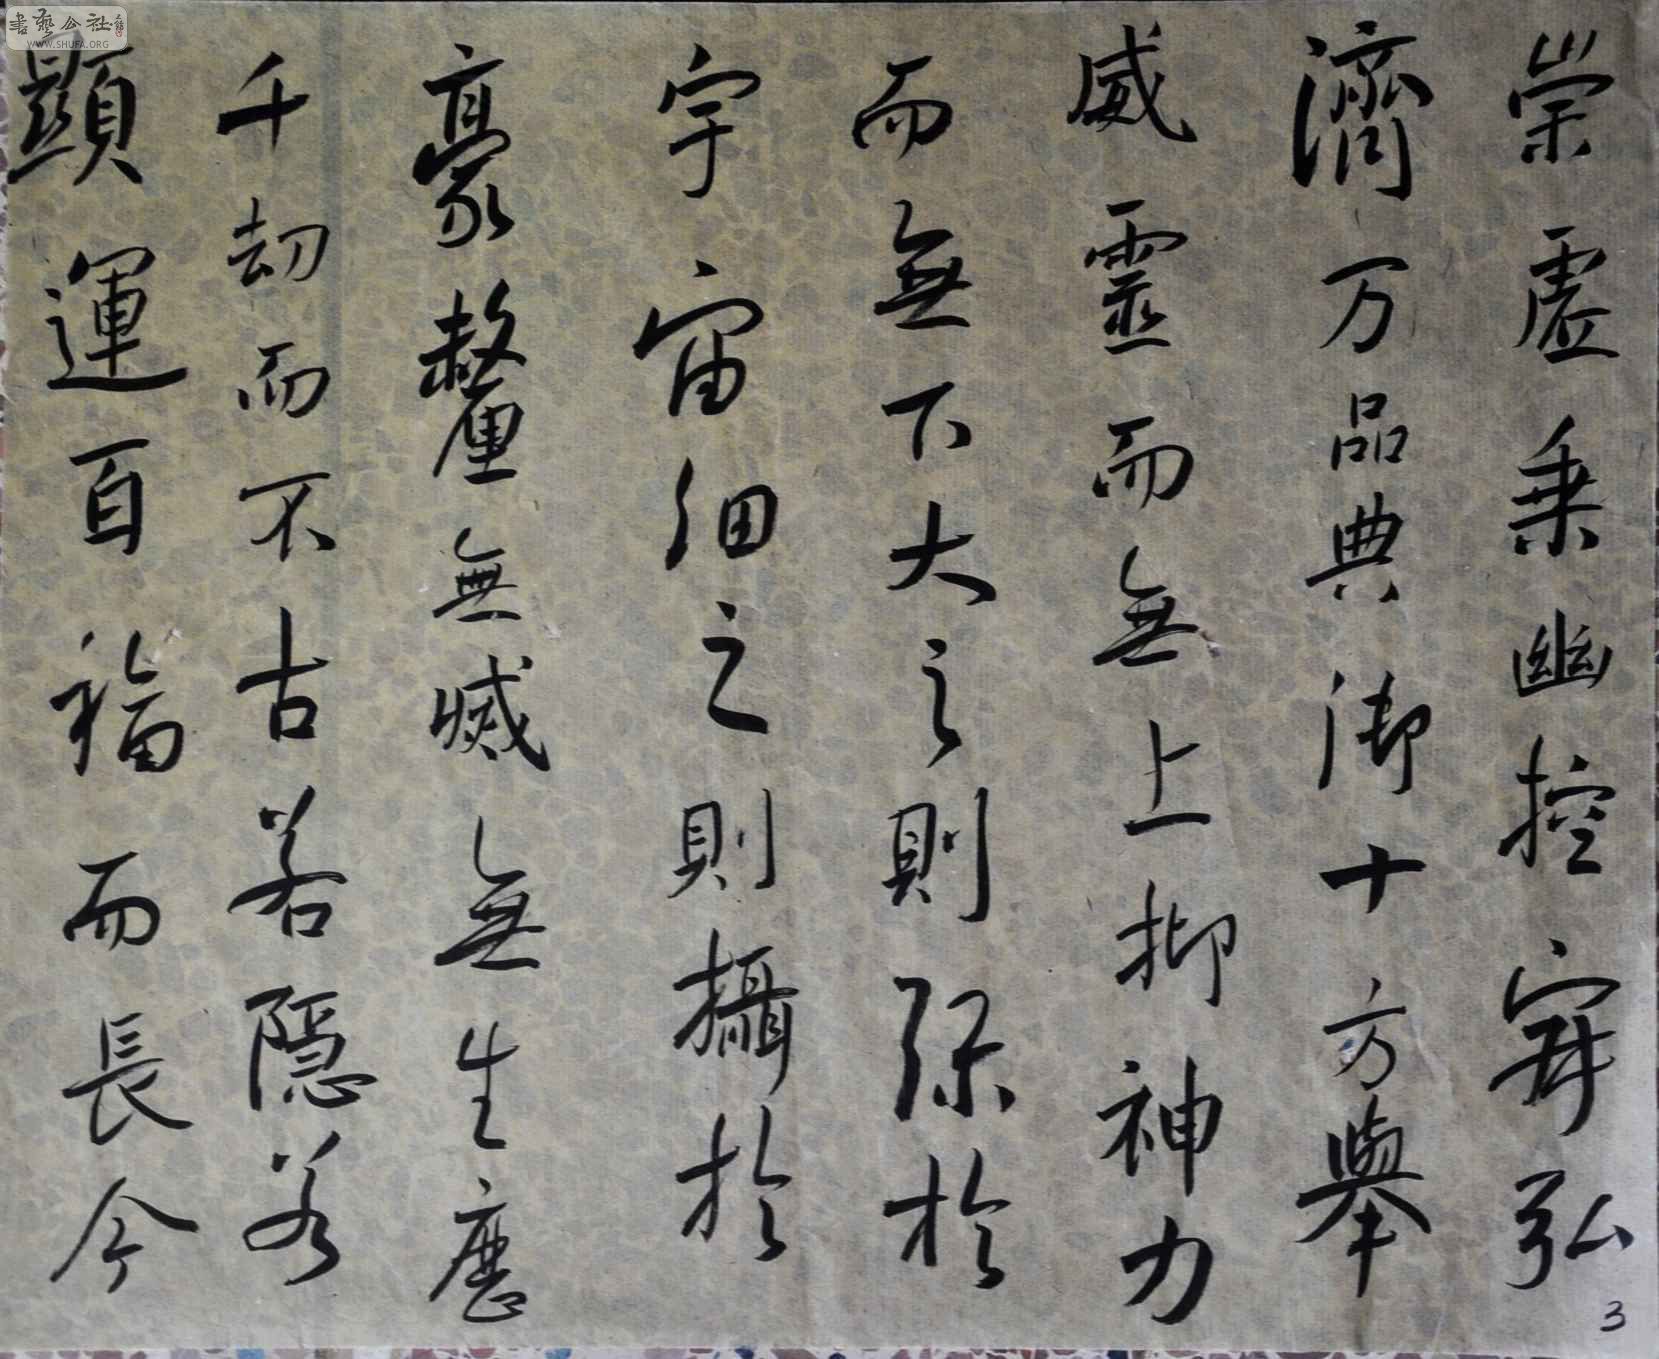 崇虛乘幽控寂弘
濟万品典御十方舉
威靈而無上抑神力
而無下大之則弥於
宇宙細之則攝於
豪釐無滅無生歷
千劫而不古若隱若
顯運百福而長今
3
書藝公社
WWW.SHUFA.ORG